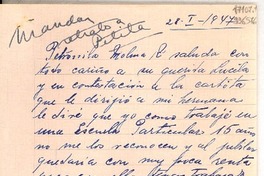 Mandar retrato a Petita
28-I-1947
Petronila Molina R saluda con
todo cariño a su querida Lucila
y en contestación a la cartita
que le dirigió a mi hermana
le diré que yo como trabajé en
una Escuela Particular 15 años
no me los reconocen y al jubilar
quedaría con muy poca renta